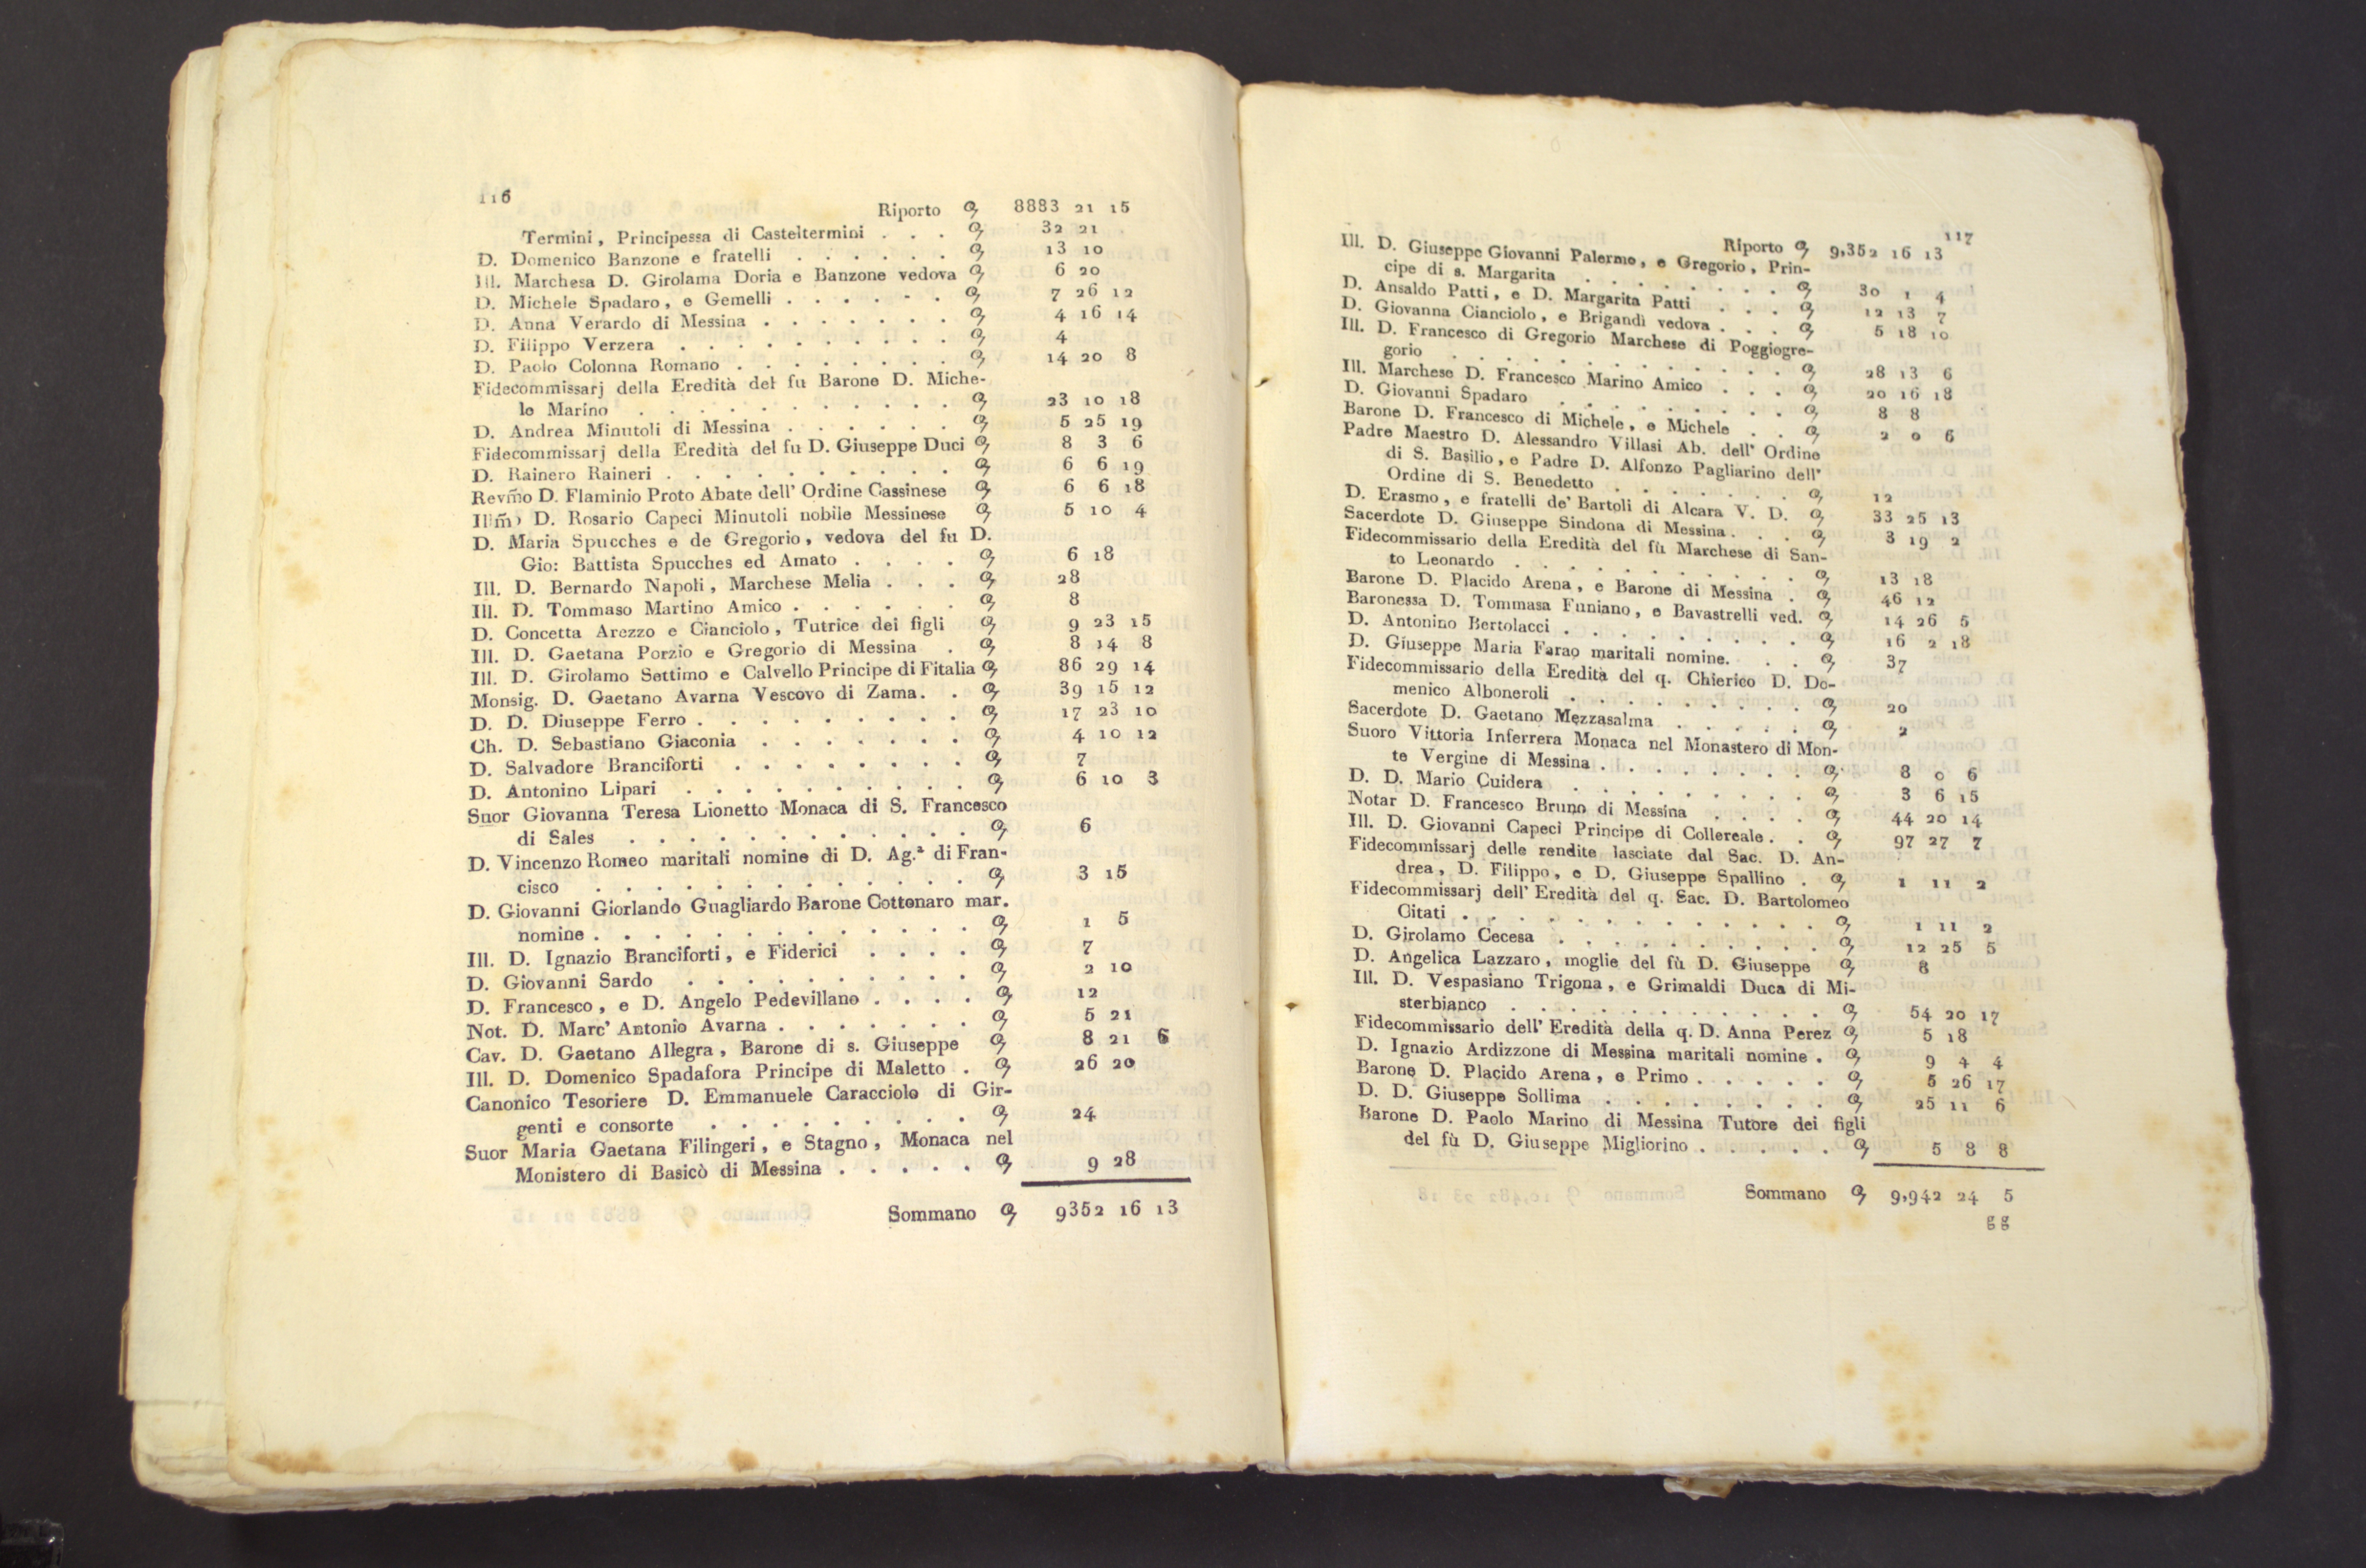 116
Riporto 8883 21 15
Termini, Principessa di Casteltermini . . . 32 21
D. Domenico Banzone e fratelli . . . . . . 13 10
Ill. Marchesa D. Girolama Doria e Banzone vedova 6 20
D. Michele Spadaro, e Gemelli . . . . . . 7 26 12
D. Anna Verardo di Messina . . . . . . . 4 16 14
D. Filippo Verzera . . . . . . . . . . 4
D. Paolo Colonna Romano . . . . . . . . 14 20 8
Fidecommissarj della Eredità del fu Barone D. Miche-
le Marino . . . . . . . . . . . 23 10 18
D. Andrea Minutoli di Messina . . . . . . 5 25 19
Fidecommissarj della Eredità del fu D. Giuseppe Duci 8 3 6
D. Rainero Raineri . . . . . . . . . . 6 6 19
Revm̃o D. Flaminio Proto Abate dell' Ordine Cassinese 6 6 18
Illm̃o D. Rosario Capeci Minutoli nobile Messinese 5 10 4
D. Maria Spucches e de Gregorio, vedova del fu D.
Gio: Battista Spucches ed Amato . . . . 6 18
Ill. D. Bernardo Napoli, Marchese Melia . . . 28
Ill. D. Tommaso Martino Amico . . . . . . 8
D. Concetta Arezzo e Cianciolo, Tutrice dei figli 9 23 15
Ill. D. Gaetana Porzio e Gregorio di Messina . 8 14 8
Ill. D. Girolamo Settimo e Calvello Principe di Fitalia 86 29 14
Monsig. D. Gaetano Avarna Vescovo di Zama. . 39 15 12
D. D. Diuseppe Ferro . . . . . . . . . 17 23 10
Ch. D. Sebastiano Giaconia . . . . . . . 4 10 12
D. Salvadore Branciforti . . . . . . . . 7
D. Antonino Lipari . . . . . . . . . . 6 10 3
Suor Giovanna Teresa Lionetto Monaca di S. Francesco
di Sales . . . . . . . . . . . . 6
D. Vincenzo Romeo maritali nomine di D. Ag.ª di Fran-
cisco . . . . . . . . . . . . . 3 15
D. Giovanni Giorlando Guagliardo Barone Cottonaro mar.
nomine . . . . . . . . . . . . . 1 5
Ill. D. Ignazio Branciforti, e Fiderici . . . . 7
D. Giovanni Sardo . . . . . . . . . . 2 10
D. Francesco, e D. Angelo Pedevillano . . . . 12
Not. D. Marc' Antonio Avarna . . . . . . . 5 21
Cav. D. Gaetano Allegra, Barone di s. Giuseppe 8 21 6
Ill. D. Domenico Spadafora Principe di Maletto . 26 20
Canonico Tesoriere D. Emmanuele Caracciolo di Gir-
genti e consorte . . . . . . . . . 24
Suor Maria Gaetana Filingeri, e Stagno, Monaca nel
Monistero di Basicò di Messina . . . . . 9 28
Sommano 9352 16 13
117
Riporto 9,352 16 13
Ill. D. Giuseppe Giovanni Palermo, e Gregorio, Prin-
cipe di s. Margarita . . . . . . . . 30 1 4
D. Ansaldo Patti, e D. Margarita Patti . . . 12 13 7
D. Giovanna Cianciolo, e Brigandì vedova . . . 5 18 10
Ill. D. Francesco di Gregorio Marchese di Poggiogre-
gorio . . . . . . . . . . . . . 28 13 6
Ill. Marchese D. Francesco Marino Amico . . . 20 16 18
D. Giovanni Spadaro . . . . . . . . . 8 8
Barone D. Francesco di Michele, e Michele . . 2 0 6
Padre Maestro D. Alessandro Villasi Ab. dell' Ordine
di S. Basilio, e Padre D. Alfonzo Pagliarino dell'
Ordine di S. Benedetto . . . . . . . 12
D. Erasmo, e fratelli de' Bartoli di Alcara V. D. 33 25 13
Sacerdote D. Giuseppe Sindona di Messina . . . 3 19 2
Fidecommissario della Eredità del fù Marchese di San-
to Leonardo . . . . . . . . . . . 13 18
Barone D. Placido Arena, e Barone di Messina . 46 12
Baronessa D. Tommasa Funiano, e Bavastrelli ved. 14 26 5
D. Antonino Bertolacci . . . . . . . . . 16 2 18
D. Giuseppe Maria Farao maritali nomine. . . 37
Fidecommissario della Eredità del q. Chierico D. Do-
menico Alboneroli . . . . . . . . . 20
Sacerdote D. Gaetano Mezzasalma . . . . . 2
Suoro Vittoria Inferrera Monaca nel Monastero di Mon-
te Vergine di Messina . . . . . . . . 8 0 6
D. D. Mario Cuidera . . . . . . . . . 3 6 15
Notar D. Francesco Bruno di Messina . . . . 44 20 14
Ill. D. Giovanni Capeci Principe di Collereale . . 97 27 7
Fidecommissarj delle rendite lasciate dal Sac. D. An-
drea, D. Filippo, e D. Giuseppe Spallino . 1 11 2
Fidecommissarj dell' Eredità del q. Sac. D. Bartolomeo
Citati . . . . . . . . . . . . . 1 11 2
D. Girolamo Cecesa . . . . . . . . . . 12 25 5
D. Angelica Lazzaro, moglie del fù D. Giuseppe 8
Ill. D. Vespasiano Trigona, e Grimaldi Duca di Mi-
sterbianco . . . . . . . . . . . 54 20 17
Fidecommissario dell' Eredità della q. D. Anna Perez 5 18
D. Ignazio Ardizzone di Messina maritali nomine . 9 4 4
Barone D. Placido Arena, e Primo . . . . . 5 26 17
D. D. Giuseppe Sollima . . . . . . . . 25 11 6
Barone D. Paolo Marino di Messina Tutore dei figli
del fù D. Giuseppe Migliorino . . . . . 5 8 8
Sommano 9,942 24 5
gg